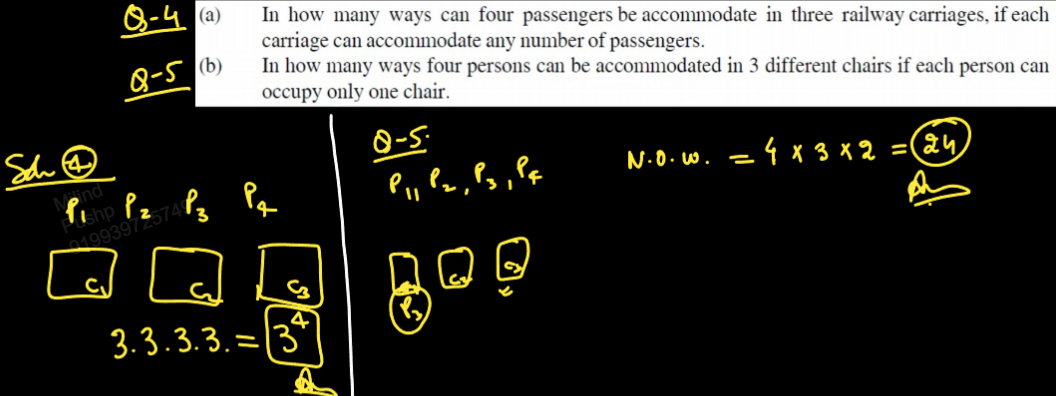 Q-4 (a) In how many ways can four passengers be accommodate in three railway carriages, if each
carriage can accommodate any number of passengers.
Q-5 (b) In how many ways four persons can be accommodated in 3 different chairs if each person can
occupy only one chair.
Soln ④
P₁ P₂ P₃ P₄
C₁ C₂ C₃
3.3.3.3. = 3⁴
Ans
Q-5.
P₁, P₂, P₃, P₄
C₂ C₃
P₃
N.O.W. = 4 x 3 x 2 = 24
Ans
Milind
Pushp